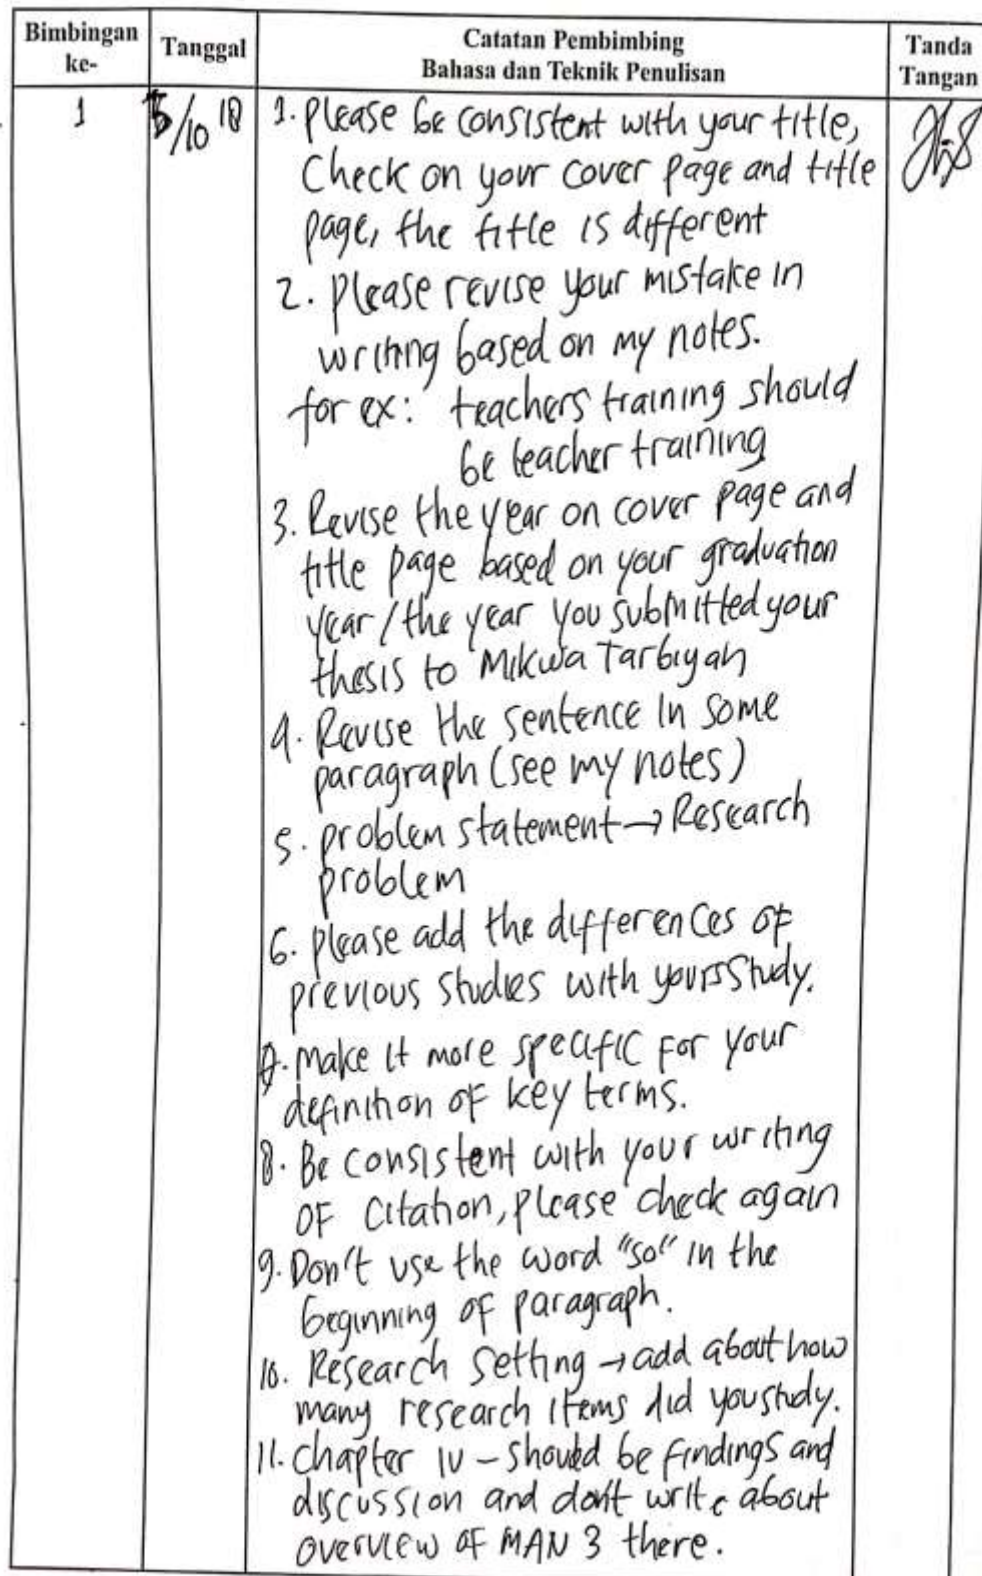 Bimbingan ke- Tanggal Catatan Pembimbing Bahasa dan Teknik Penulisan Tanda Tangan
1 5/10 18 1. Please be consistent with your title,
Check on your cover page and title
page, the title is different
2. please revise your mistake in
writing based on my notes.
for ex: teachers training should
be teacher training
3. Revise the year on cover page and
title page based on your graduation
year / the year you submitted your
thesis to Mikwa Tarbiyah
4. Revise the sentence in some
paragraph (see my notes)
5. problem statement → Research
problem
6. please add the differences of
previous studies with yours study.
7. make it more specific for your
definition of key terms.
8. Be consistent with your writing
of citation, please check again
9. Don't use the word "so" in the
beginning of paragraph.
10. Research setting → add about how
many research items did you study.
11. Chapter IV - should be findings and
discussion and don't write about
overview of MAN 3 there.